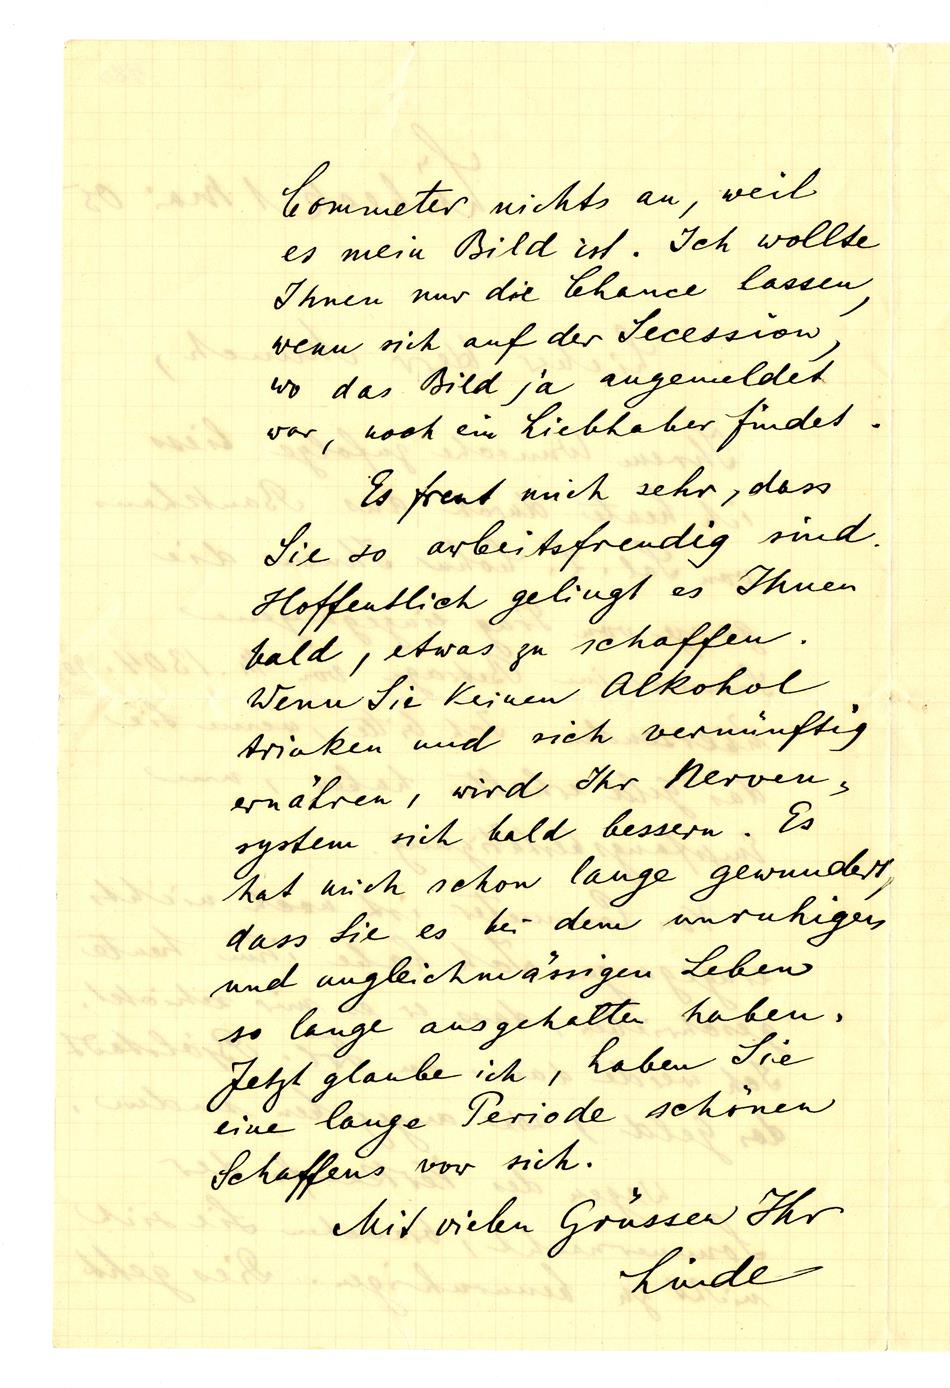 Commeter nichts an, weil
es mein Bild ist. Ich wollte
Ihnen nur die Chance lassen,
wenn sich auf der Secession,
wo das Bild ja angemeldet
war, noch ein Liebhaber findet.
Es freut mich sehr, dass
Sie so arbeitsfreudig sind.
Hoffentlich gelingt es Ihnen
bald, etwas zu schaffen.
Wenn Sie keinen Alkohol
trinken und sich vernünftig
ernähren, wird Ihr Nerven-
system sich bald bessern. Es
hat mich schon lange gewundert,
dass Sie es bei dem unruhigen
und ungleichmässigen Leben
so lange ausgehalten haben.
Jetzt glaube ich, haben Sie
eine lange Periode schönen
Schaffens vor sich.
Mit vielen Grüssen Ihr
Linde